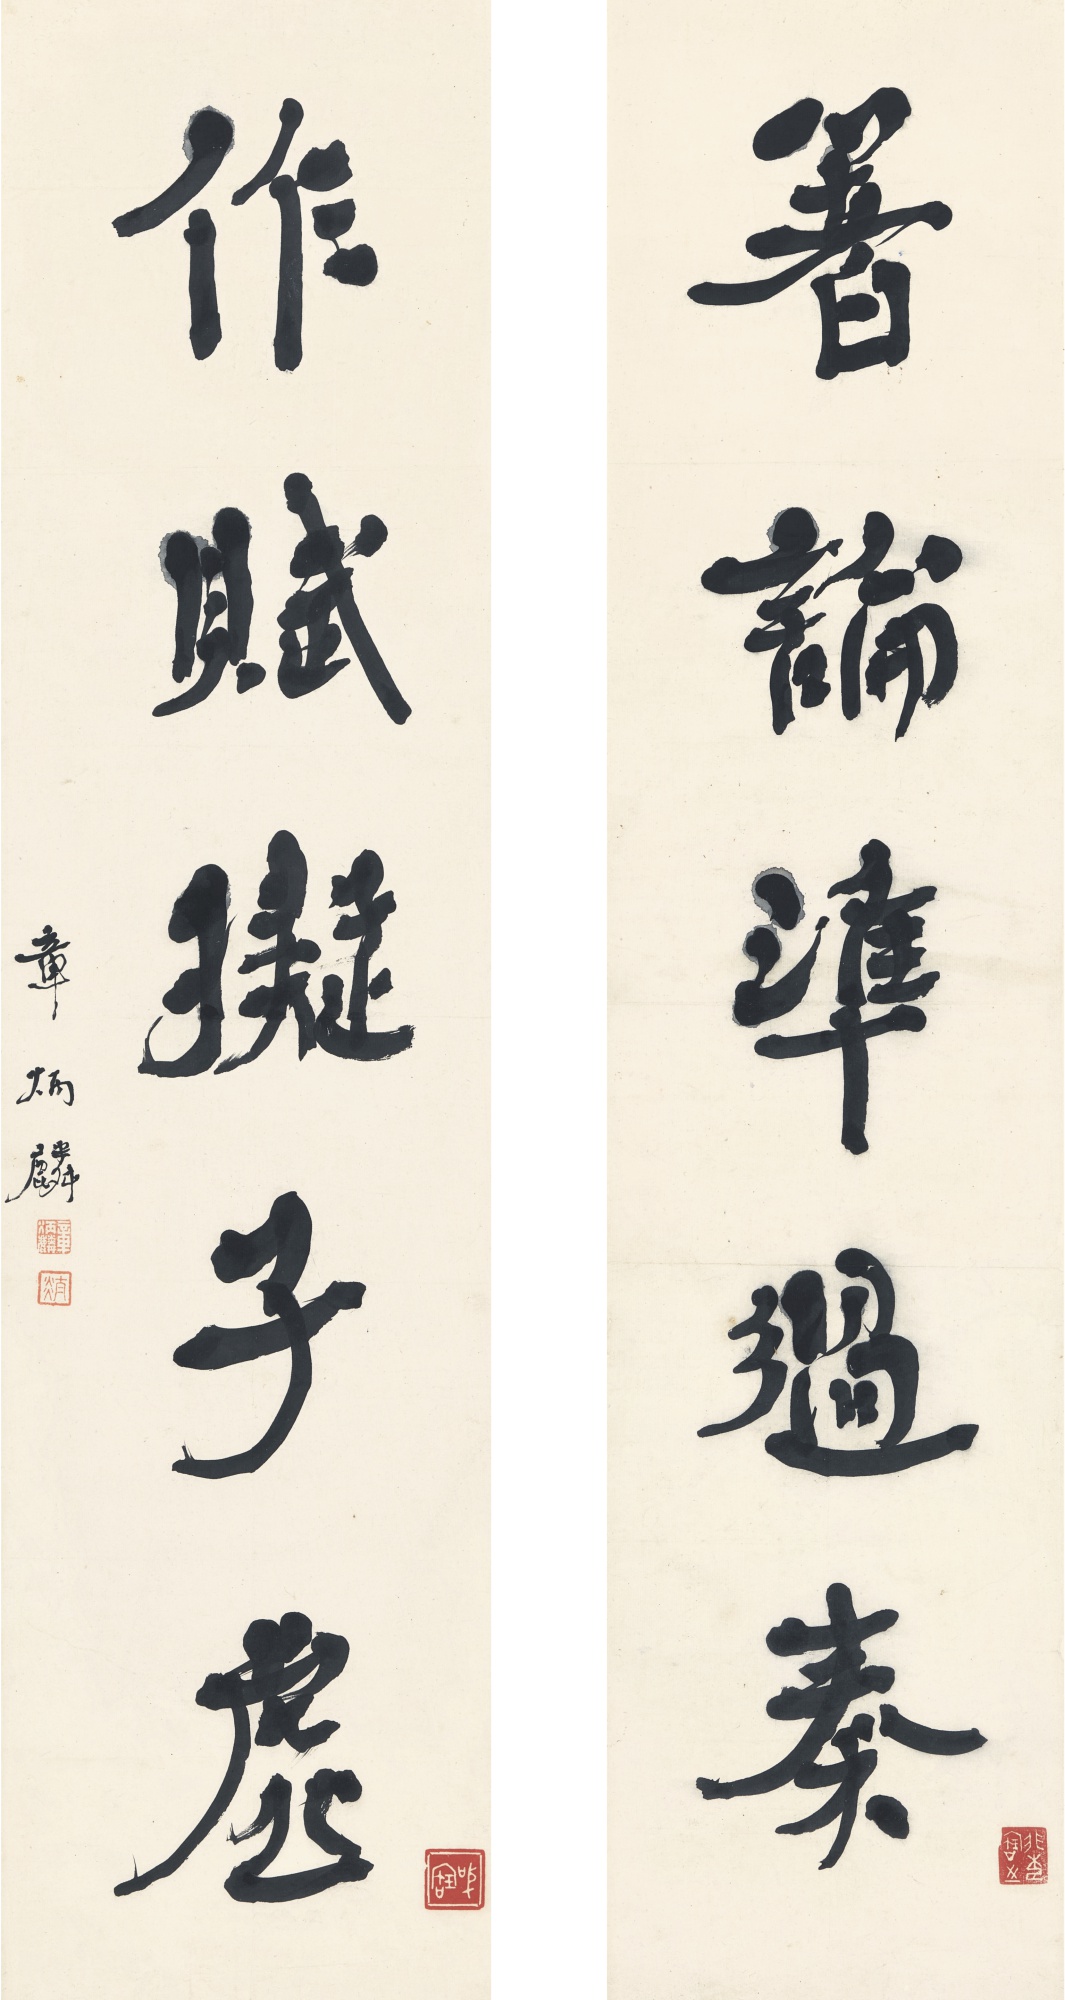 著論準過秦
作賦擬子虛
章炳麟
章炳麟